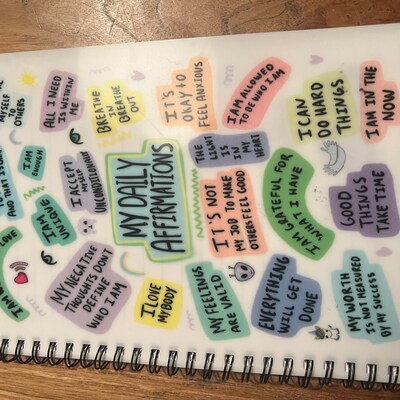 MYSELF
TO
OTHERS
ALL I NEED
IS WITHIN
ME
BREATHE
IN
BREATHE
OUT
IT'S
OKAY TO
FEEL ANXIOUS
I AM ALLOWED
TO BE WHO I AM
I CAN
DO HARD
THINGS
I AM IN THE
NOW
AND THAT IS
I AM
ENOUGH
I ACCEPT
MYSELF
UNCONDITIONALLY
MY DAILY
AFFIRMATIONS
THE
LIGHT
IS
IN MY
HEART
I AM
UNIQUE
IT'S NOT
MY JOB TO MAKE
OTHERS FEEL GOOD
I AM GRATEFUL FOR
WHAT I HAVE
GOOD
THINGS
TAKE TIME
LOVE
MY NEGATIVE
THOUGHTS DON'T
DEFINE
WHO I AM
I LOVE
MY BODY
MY FEELINGS
ARE VALID
EVERYTHING
WILL GET
DONE
MY WORTH
IS NOT MEASURED
BY MY SUCCESS